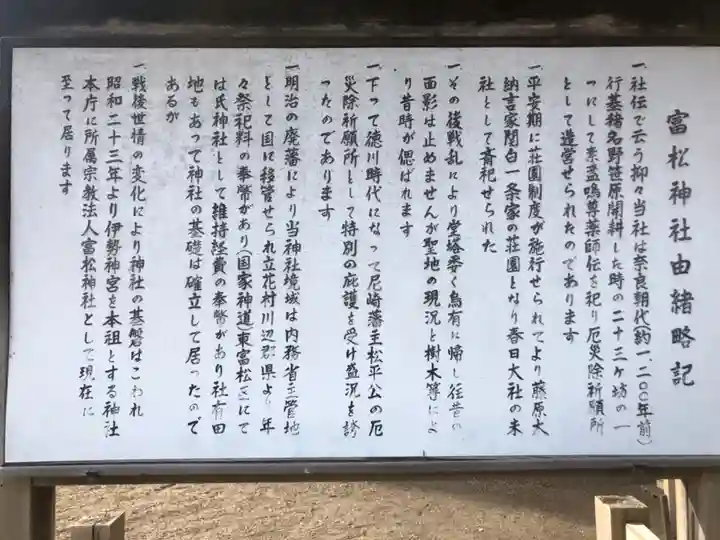 富松神社由緒略記
一、社伝で云う抑々当社は奈良朝代(約一、二〇〇年前)
行基猪名野笹原開耕した時の二十三ヶ坊の一
つにして素盞嗚尊薬師伝を祀り厄災除祈願所
として造営せられたのであります
一、平安期に荘園制度が施行せられてより藤原大
納言家関白一条家の荘園となり春日大社の末
社として斉祀せられた
一、その後戦乱により堂塔委く烏有に帰し往昔の
面影は止めませんが聖地の現況と樹木等によ
り昔時が偲ばれます
一、下って徳川時代になって尼崎藩主松平公の厄
災除祈願所として特別の庇護を受け盛況を誇
ったのであります
一、明治の廃藩により当神社境域は内務省主管地
として国に移管せられ立花村川辺郡県より年
々祭祀料の奉幣があり(国家神道)東富松区にて
は氏神社として維持経費の奉幣があり社有田
地もあって神社の基礎は確立して居ったので
あるが
一、戦後世情の変化により神社の基磐はこわれ
昭和二十三年より伊勢神宮を本祖とする神社
本庁に所属宗教法人富松神社として現在に
至って居ります